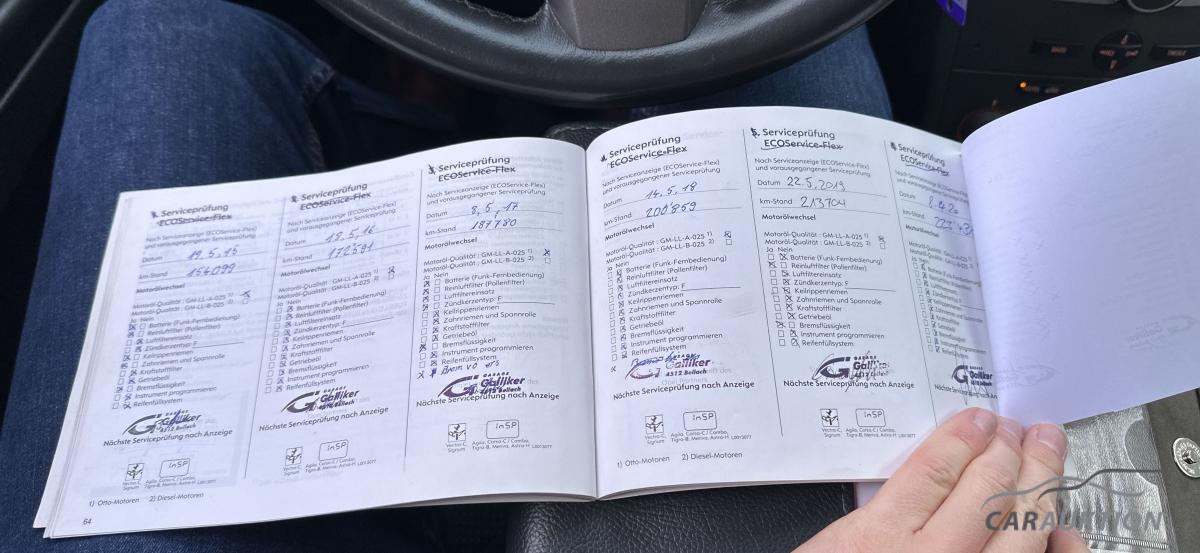 1. Serviceprüfung
ECOService-Flex
Nach Serviceanzeige (ECOService-Flex)
und vorausgegangener Serviceprüfung
Datum 19.5.15
km-Stand 154099
Motorölwechsel
Motoröl-Qualität : GM-LL-A-025 1)
Motoröl-Qualität : GM-LL-B-025 2)
Ja Nein
Batterie (Funk-Fernbedienung)
Reinluftfilter (Pollenfilter)
Luftfiltereinsatz
Zündkerzentyp: F
Keilrippenriemen
Zahnriemen und Spannrolle
Kraftstoffilter
Getriebeöl
Bremsflüssigkeit
Instrument programmieren
Reifenfüllsystem
GARAGE
Galliker
4512 Bellach
Nächste Serviceprüfung nach Anzeige
Vectra-C,
Signum
inSP
Agila, Corsa-C / Combo,
Tigra-B, Meriva, Astra-H
1) Otto-Motoren 2) Diesel-Motoren
64
2. Serviceprüfung
ECOService-Flex
Nach Serviceanzeige (ECOService-Flex)
und vorausgegangener Serviceprüfung
Datum 18.5.16
km-Stand 172591
Motorölwechsel
Motoröl-Qualität : GM-LL-A-025 1)
Motoröl-Qualität : GM-LL-B-025 2)
Ja Nein
Batterie (Funk-Fernbedienung)
Reinluftfilter (Pollenfilter)
Luftfiltereinsatz
Zündkerzentyp: F
Keilrippenriemen
Zahnriemen und Spannrolle
Kraftstoffilter
Getriebeöl
Bremsflüssigkeit
Instrument programmieren
Reifenfüllsystem
GARAGE
Galliker
Nächste Serviceprüfung nach Anzeige
Vectra-C,
Signum
inSP
Agila, Corsa-C / Combo,
Tigra-B, Meriva, Astra-H L0013077
3. Serviceprüfung
ECOService-Flex
Nach Serviceanzeige (ECOService-Flex)
und vorausgegangener Serviceprüfung
Datum 8.5.17
km-Stand 187780
Motorölwechsel
Motoröl-Qualität : GM-LL-A-025 1)
Motoröl-Qualität : GM-LL-B-025 2)
Ja Nein
Batterie (Funk-Fernbedienung)
Reinluftfilter (Pollenfilter)
Luftfiltereinsatz
Zündkerzentyp: F
Keilrippenriemen
Zahnriemen und Spannrolle
Kraftstoffilter
Getriebeöl
Bremsflüssigkeit
Instrument programmieren
Reifenfüllsystem
GARAGE
Galliker
4512 Bellach
Nächste Serviceprüfung nach Anzeige
Vectra-C,
Signum
inSP
Agila, Corsa-C / Combo,
Tigra-B, Meriva, Astra-H L0013077
4. Serviceprüfung
ECOService-Flex
Nach Serviceanzeige (ECOService-Flex)
und vorausgegangener Serviceprüfung
Datum 14.5.18
km-Stand 200859
Motorölwechsel
Motoröl-Qualität : GM-LL-A-025 1)
Motoröl-Qualität : GM-LL-B-025 2)
Ja Nein
Batterie (Funk-Fernbedienung)
Reinluftfilter (Pollenfilter)
Luftfiltereinsatz
Zündkerzentyp: F
Keilrippenriemen
Zahnriemen und Spannrolle
Kraftstoffilter
Getriebeöl
Bremsflüssigkeit
Instrument programmieren
Reifenfüllsystem
GARAGE
Galliker
4512 Bellach
Nächste Serviceprüfung nach Anzeige
Vectra-C,
Signum
inSP
Agila, Corsa-C / Combo,
Tigra-B, Meriva, Astra-H L0013077
1) Otto-Motoren 2) Diesel-Motoren
5. Serviceprüfung
ECOService-Flex
Nach Serviceanzeige (ECOService-Flex)
und vorausgegangener Serviceprüfung
Datum 22.5.2019
km-Stand 213704
Motorölwechsel
Motoröl-Qualität : GM-LL-A-025 1)
Motoröl-Qualität : GM-LL-B-025 2)
Ja Nein
Batterie (Funk-Fernbedienung)
Reinluftfilter (Pollenfilter)
Luftfiltereinsatz
Zündkerzentyp: F
Keilrippenriemen
Zahnriemen und Spannrolle
Kraftstoffilter
Getriebeöl
Bremsflüssigkeit
Instrument programmieren
Reifenfüllsystem
GARAGE
Galliker
Nächste Serviceprüfung nach Anzeige
Vectra-C,
Signum
inSP
Agila, Corsa-C / Combo,
Tigra-B, Meriva, Astra-H L0013077
Serviceprüfung
ECOService-Flex
Nach Serviceanzeige
und vorausgegangener
Datum
km-Stand
Motorölwechsel
Nächste Serviceprüfung nach An
CARAUKTION